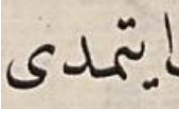 ایتمدی